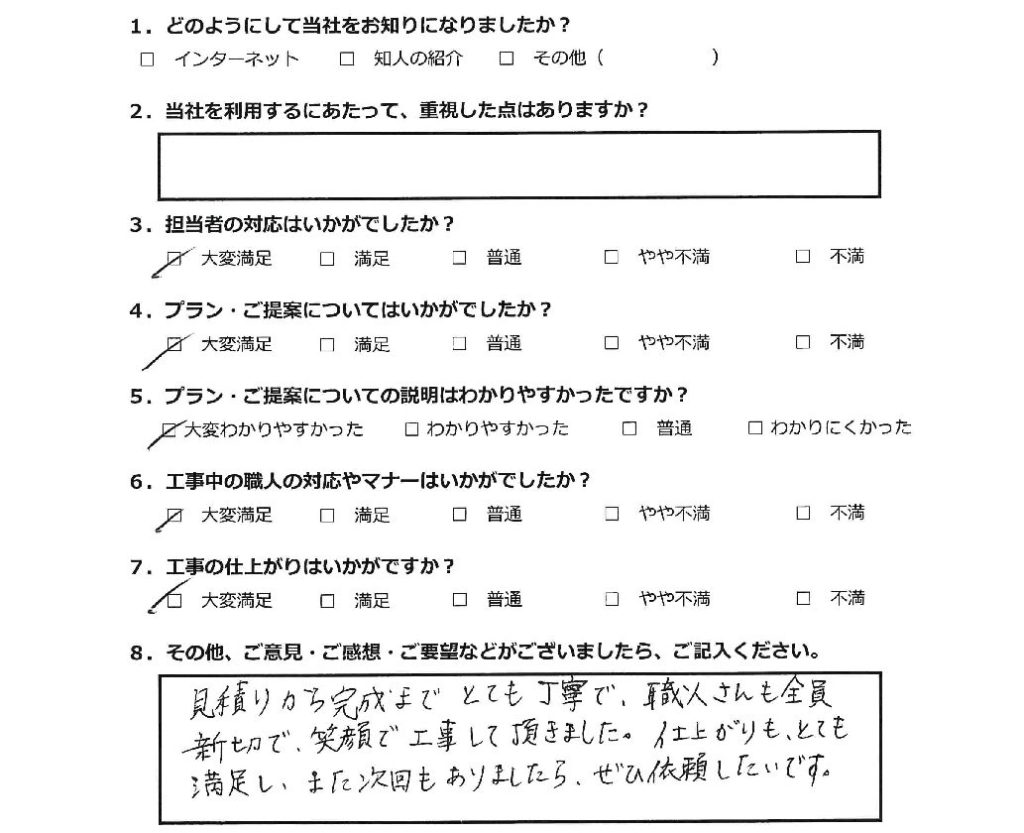 1．どのようにして当社をお知りになりましたか？
□ インターネット □ 知人の紹介 □ その他（ ）
2．当社を利用するにあたって、重視した点はありますか？
3．担当者の対応はいかがでしたか？
□ 大変満足 □ 満足 □ 普通 □ やや不満 □ 不満
4．プラン・ご提案についてはいかがでしたか？
□ 大変満足 □ 満足 □ 普通 □ やや不満 □ 不満
5．プラン・ご提案についての説明はわかりやすかったですか？
□ 大変わかりやすかった □ わかりやすかった □ 普通 □ わかりにくかった
6．工事中の職人の対応やマナーはいかがでしたか？
□ 大変満足 □ 満足 □ 普通 □ やや不満 □ 不満
7．工事の仕上がりはいかがですか？
□ 大変満足 □ 満足 □ 普通 □ やや不満 □ 不満
8．その他、ご意見・ご感想・ご要望などがございましたら、ご記入ください。
見積りから完成まで とても丁寧で、職人さんも全員
新切で、笑顔で工事して頂きました。仕上がりも、とても
満足し、また次回もありましたら、ぜひ依頼したいです。